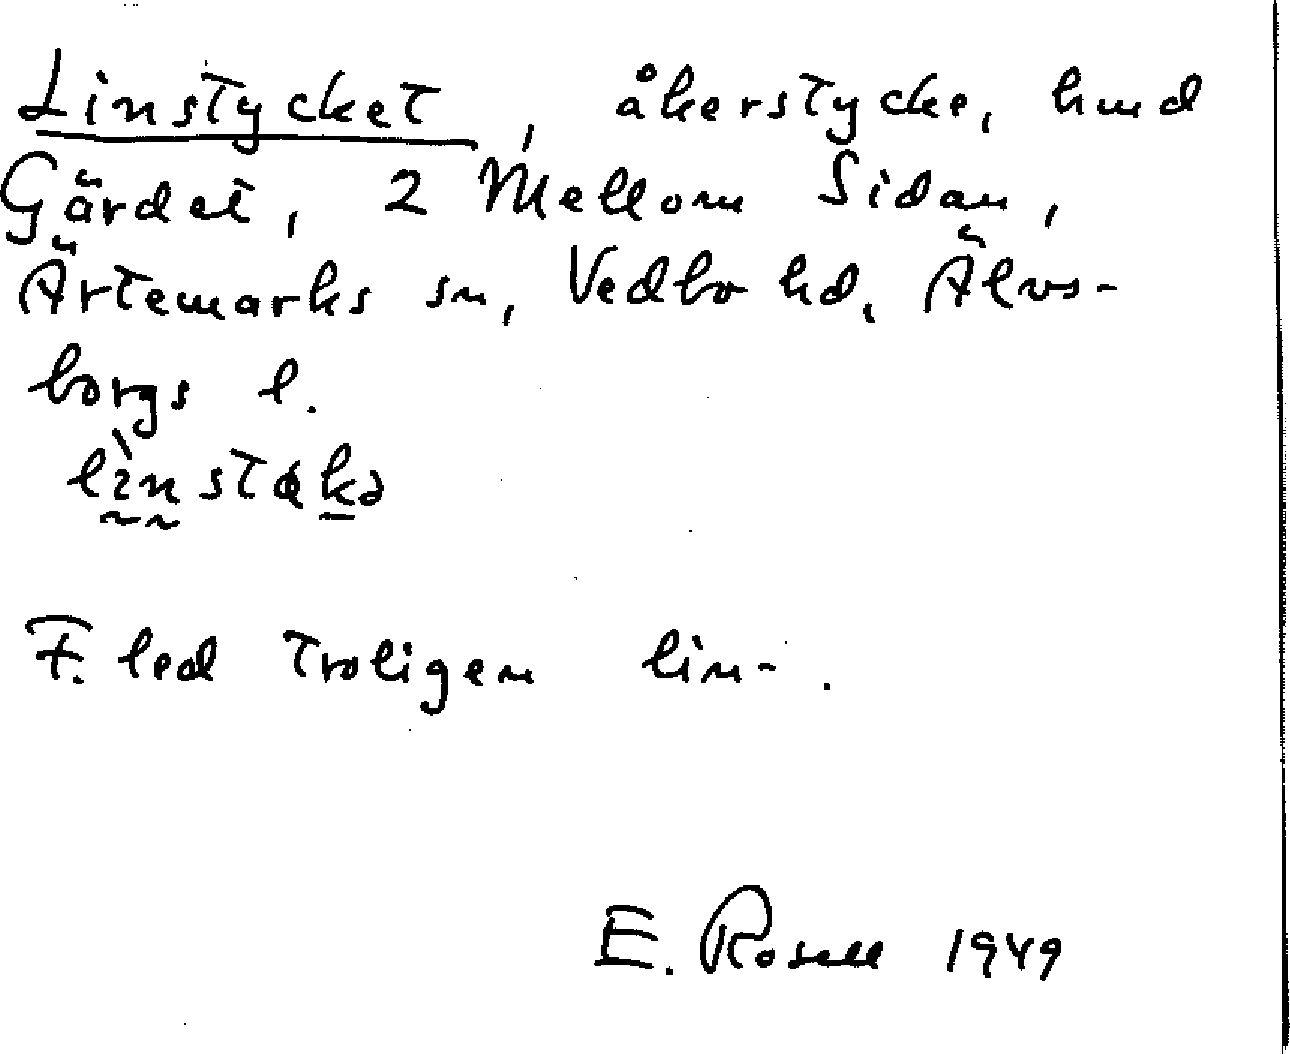 Linstycket, åkerstycke, hmd
Gärdet, 2 Mellom Sidan,
Ärtemarks sn, Vedbo hd, Älvs-
borgs l.
F. led troligen lin-.
E. Rosell 1949